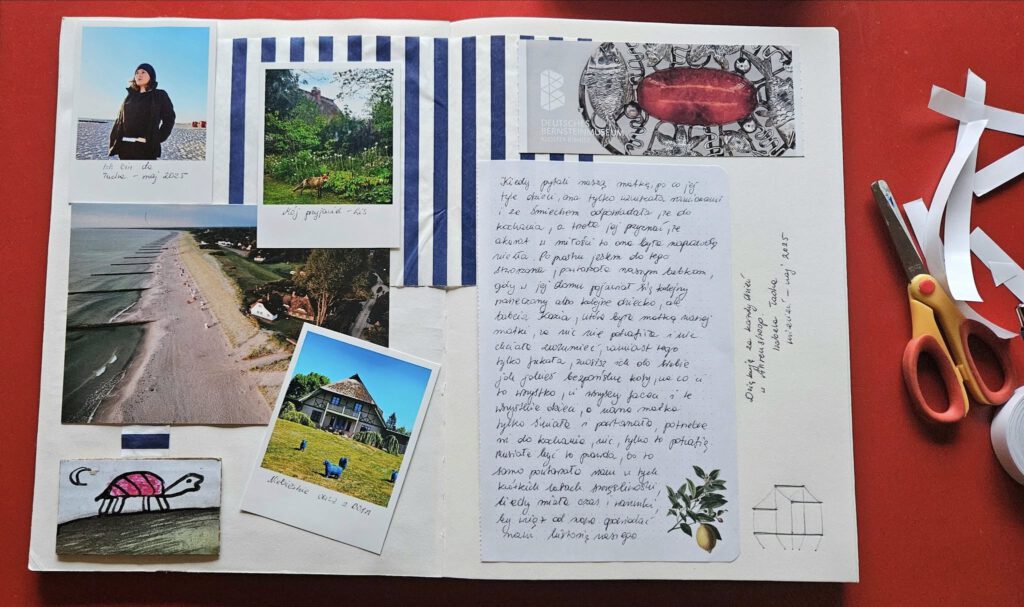 Ich bin da
Tucha - maj 2025
Mój przyjaciel - Lis
DEUTSCHES
BERNSTEINMUSEUM
Kiedy pytali naszą matkę, po co jej
tyle dzieci, ona tylko wzruszała ramionami
i ze śmiechem odpowiadała, że do
kochania, a trzeba jej przyznać, że
akurat w miłości to ona była naprawdę
niezła. Po prostu jestem do tego
stworzona, powtarzała naszym babkom,
gdy w jej domu pojawiał się kolejny
narzeczony albo kolejne dziecko, ale
babcia Kazia, która była matką naszej
matki, za nic nie potrafiła i nie
chciała zrozumieć, zamiast tego
tylko fukała, znosisz ich do siebie
jak jakieś bezpańskie koty, na co ci
to wszystko, ci wszyscy faceci i te
wszystkie dzieci, a nasza matka
tylko śmiała i powtarzała, potrzebne
mi do kochania, nic, tylko to potrafię.
Musiała być to prawda, bo to
samo powtarzała nam w tych
krótkich latach szczęśliwości
kiedy miała czas i
by wciąż od nowa opowiadać
nam historię naszego
Dziękuję za każdy dzień
w Ahrenshoop
Izabela Tucha
maj 2025